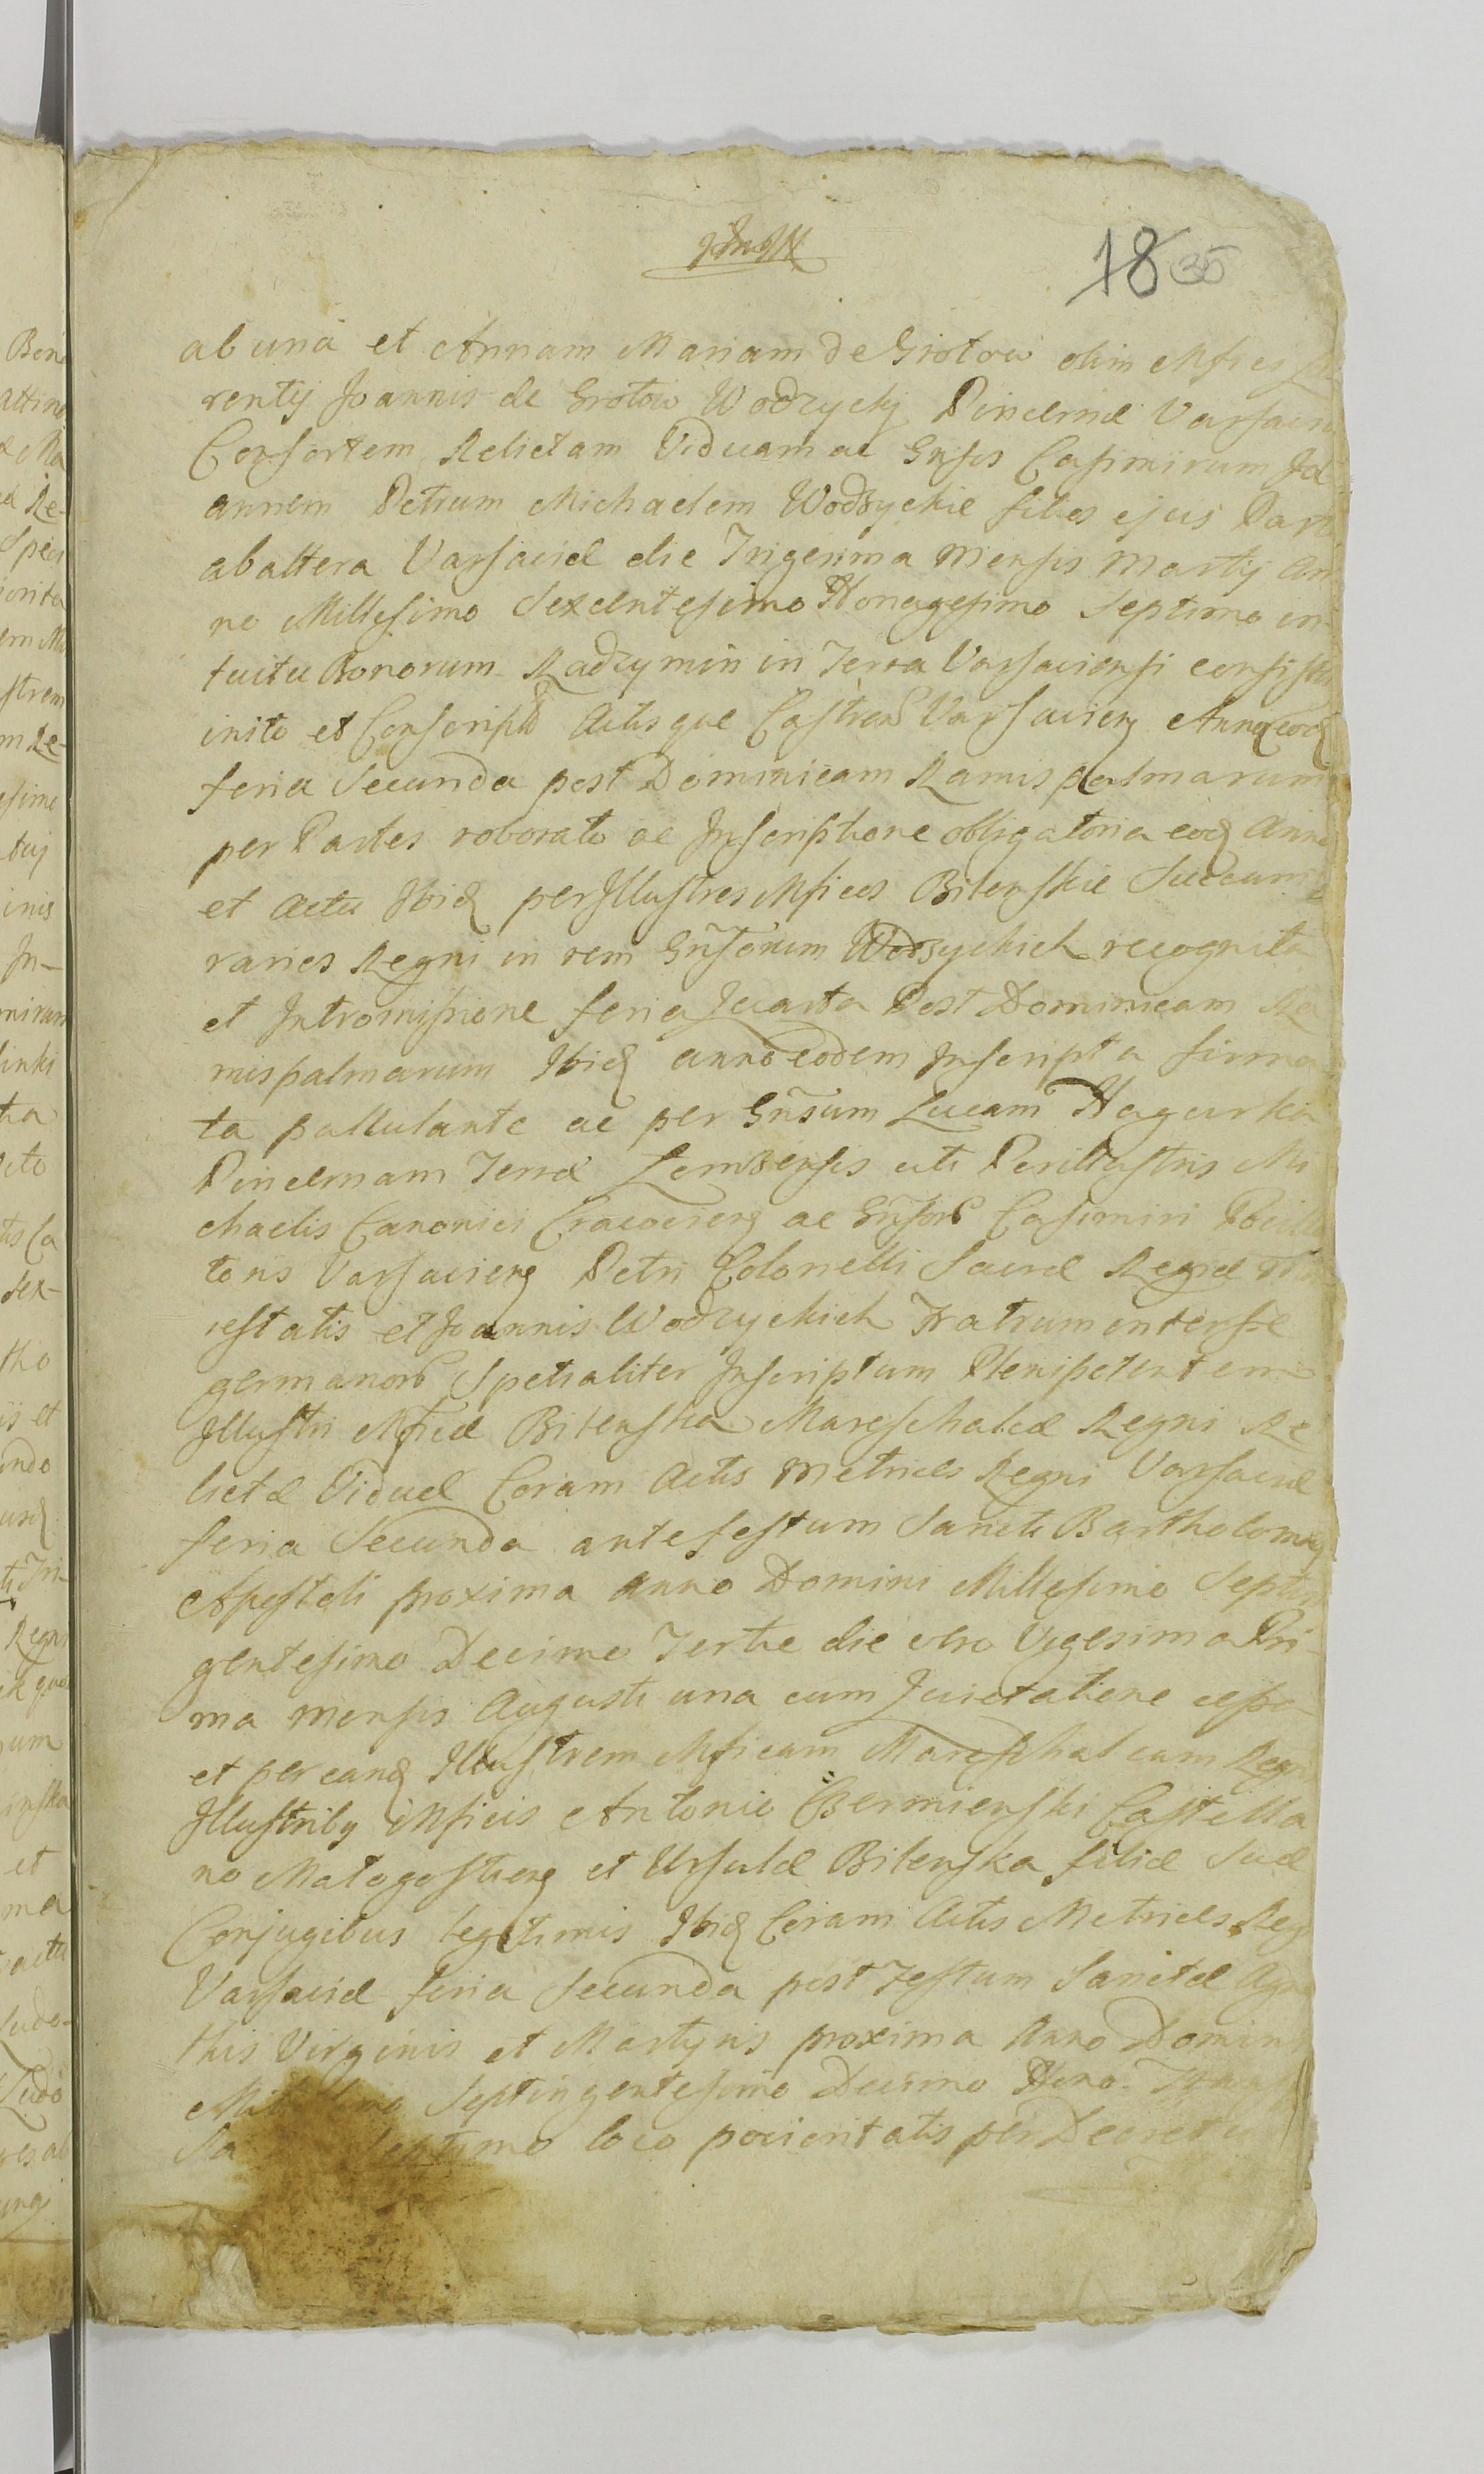 18 35
ab una et Annam Mariam de Grotow olim Mfici
rentij Joannis de Grotow Wodzycky Pincernæ Varsavien
Consortem Relictam Viduam ac Gnsos Casimirum Jo
annem Petrum Michaelem Wodzyckie filios ejus Part
ab altera Varsaviæ die Trigesima Mensis Martij An
no Millesimo Sexcentesimo Nonagesimo Septimo in
tuitu Bonorum Radzymin in Terra Varsaviensi consisten
inito et Conscripto Actisque Castren Varsavien Anno eod
feria Secunda post Dominicam Ramispalmarum
per Partes roborato ac Inscriptione obligatoria eod Anno
et Actu Ibid per Illustres Mficos Bilenskie Succame
rarios Regni in rem Gnsorum Wodzyckich recognita
et Intromissione feria Quarta Post Dominicam Ra
mispalmarum Ibid anno eodem Inscripta firma
ta pullulante ac per Gnsum Lucam Nagurka
Pincernam Terræ Zembrensis uti Perillustris Mi
chaelis Canonici Cracovien ac Gnsorum Casimiri Pocilla
toris Varsavien Petri Colonelli Sacræ Regiæ Ma
iestatis et Joannis Wodzyckich Fratrum inter se
germanorum Spetialiter Inscriptum Plenipotentem
Illustri Mficæ Bilenska Mareschalcæ Regni Re
lictæ Viduæ Coram Actis Metrices Regni Varsaviæ
feria Secunda ante festum Sancti Bartholomæi
Apostoli proxima Anno Domini Millesimo Septin
gentesimo Decimo Tertio die vero Vigesima Pri
ma Mensis Augusti una cum Quietatione cesso
et per eand Illustrem Mficam Mareschalcam Regni
Illustribus Mficis Antonio Czermienski Castella
no Malogostien et Ursulæ Bilenska filiæ Suæ
Conjugibus legitimis Ibid Coram Actis Metrices Reg
Varsaviæ feria Secunda post Festum Sanctæ Aga
this Virginis et Martyris proxima Anno Domini
Septingentesimo Decimo Nono
Septimo loco pocioritatis per Decretu